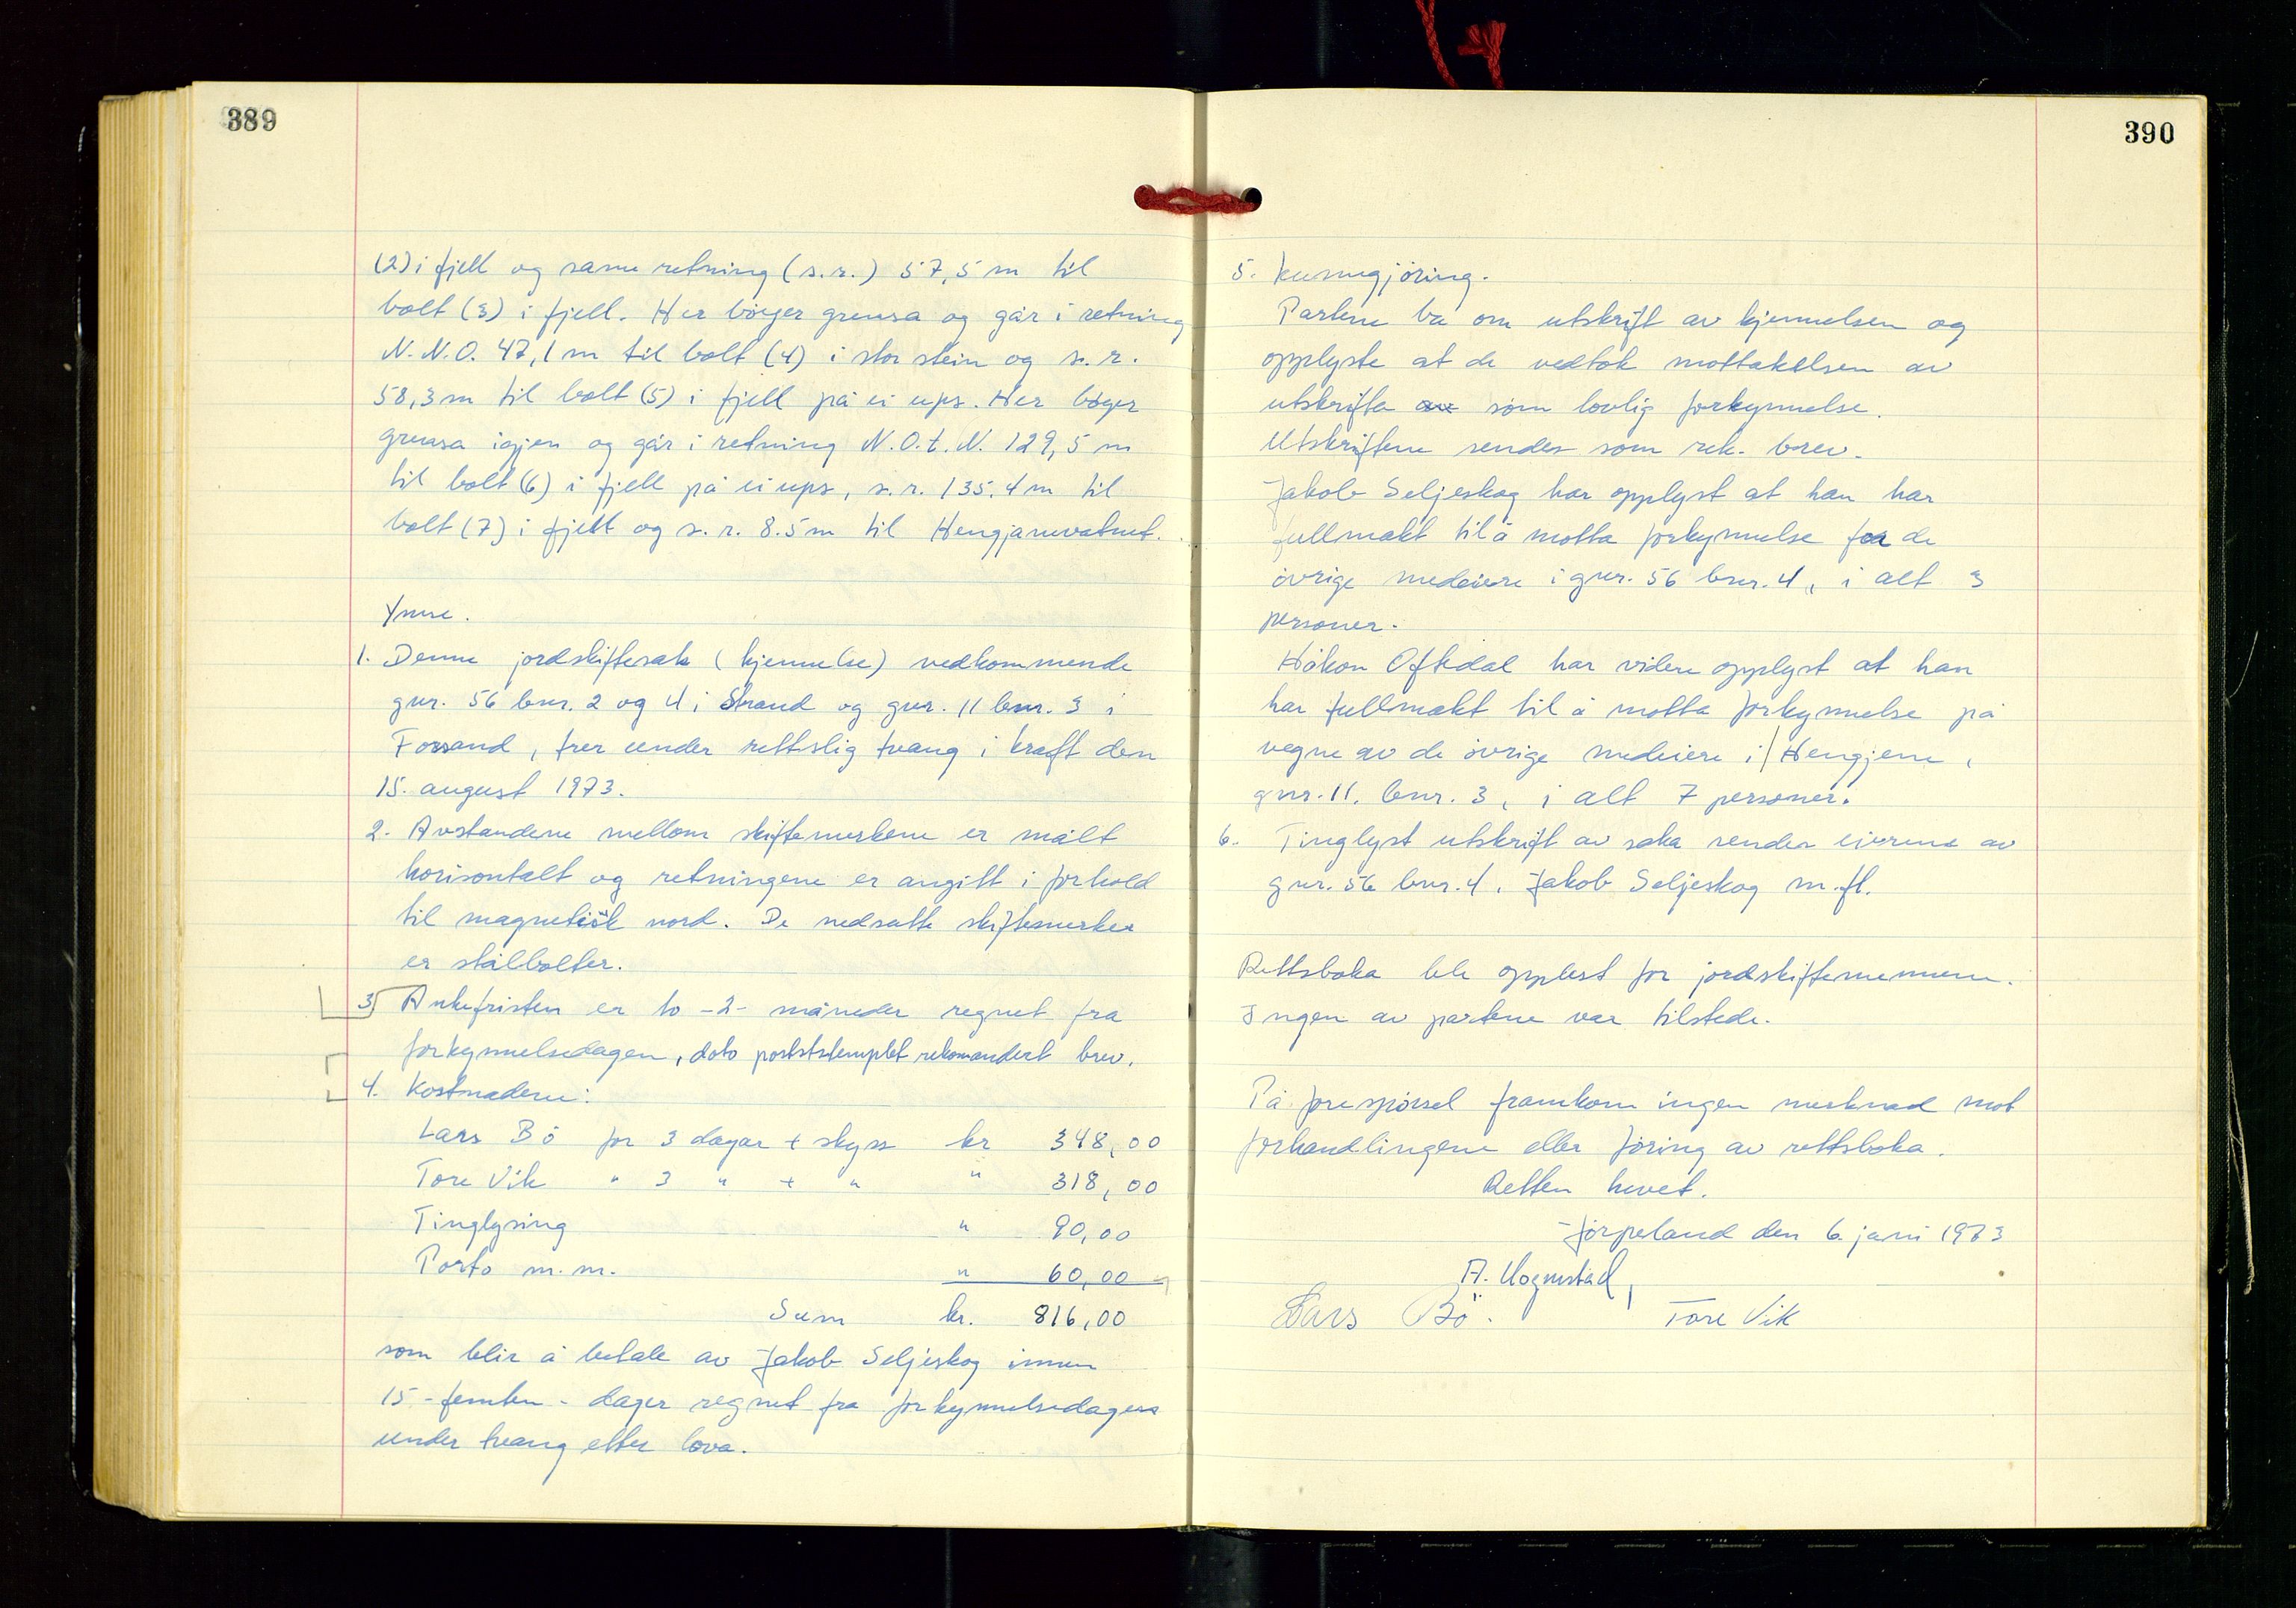 389
(2) i fjell og same retning (s.r.) 57,5 m til
bolt (3) i fjell. Her böyer grensa og går i retning
N.N.O. 47,1 m til bolt (4) i stor stein og s.r.
58,3 m til bolt (5) i fjell på ei ups. Her böyer
grensa igjen og går i retning N.O.t.N. 129,5 m
til bolt (6) i fjell på ei ups, s.r. 135.4 m til
bolt (7) i fjell og s.r. 8.5 m til Hengjanevatnet.
Ymse.
1. Denne jordskiftesak (kjennelse) vedkommende
gnr. 56 bnr. 2 og 4 i Strand og gnr. 11 bnr. 3 i
Forsand, trer under rettslig tvang i kraft den
15. august 1973.
2. Avstandene mellom skiftemerkene er målt
horisontalt og retningene er angitt i forhold
til magnetisk nord. De nedsatte skiftemerker
er stålbolter.
3 Ankefristen er to -2- måneder regnet fra
forkynnelsedagen, dato poststemplet rekomandert brev.
4. Kostnadene:
Lars Bö for 3 dagar + skyss kr 348,00
Tore Vik " 3 " + " " 318,00
Tinglysing " 90,00
Porto m.m. " 60,00
Sum kr. 816,00
som blir å betale av Jakob Seljeskog innen
15 - femten - dager regnet fra forkynnelsedagen
under tvang etter lova.
390
5. Kunngjöring.
Partene ba om utskrift av kjennelsen og
opplyste at de vedtok mottakelsen av
utskrifta som lovlig forkynnelse.
Utskriftene sendes som rek. brev.
Jakob Seljeskog har opplyst at han har
fullmakt til å motta forkynnelse for de
övrige medeiere i gnr. 56 bnr. 4, i alt 3
personer.
Håkon Oftedal har videre opplyst at han
har fullmakt til å motta forkynnelse på
vegne av de övrige medeiere i Hengjene,
gnr. 11. bnr. 3, i alt 7 personer.
6. Tinglyst utskrift av saka sendes eierene av
gnr. 56 bnr. 4, Jakob Seljeskog m.fl.
Rettsboka ble opplest for jordskiftemennene.
Ingen av partene var tilstede.
På forespörsel framkom ingen merknad mot
forhandlingene eller föring av rettsboka.
Retten hevet.
Jörpeland den 6. juni 1973
Lars Bö.
Tore Vik